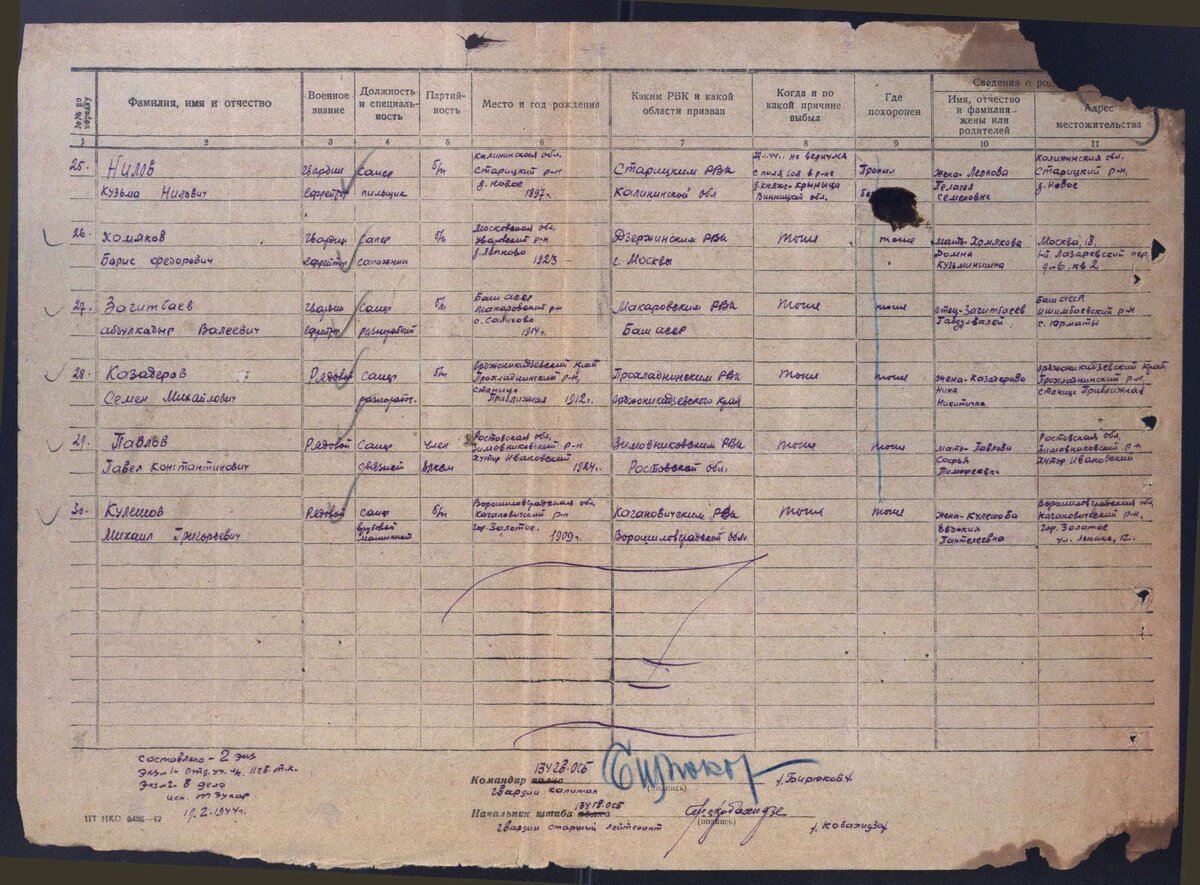 №№ по порядку
Фамилия, имя и отчество
Военное звание
Должность и специальность
Партийность
Место и год рождения
Каким РВК и какой области призван
Когда и по какой причине выбыл
Где похоронен
Сведения о род
Имя, отчество и фамилия жены или родителей
Адрес местожительства
1 2 3 4 5 6 7 8 9 10 11
25. Нилов Гвардии Сапер б/п Калининская обл. Старицким РВК не вернулся Пропал жена-Леонова Калининская обл.
Кузьма Нилович Ефрейтор пильщик Старицкий р-н д. Новое 1897г. Калининской обл с поля боя в р-не Винницкой обл. Пелагея Семеновна Старицкий р-н, д. Новое
26. Хомяков Гвардии Сапер б/п Московская обл. Уваровский р-н Дзержинским РВК тоже тоже мать-Хомякова Москва, 18.
Борис Федорович Ефрейтор сапожник 1923 г. Москвы Домна Кузьминишна 1-й Лазаревский пер, д-6, кв 2
27. Загитбаев Гвардии Сапер б/п Баш асср Макаровский р-н Макаровским РВК тоже тоже отец-Загитбаев Баш асср. Ишимбаевский р-н
абдулкадыр Валеевич Ефрейтор разнорабоч с. Салихово 1914г. Баш асср Габдулвалей с. Юрматы
28. Казадеров Рядовой Сапер б/п Орджоникидзевский край Прохладнинский р-н, Прохладнинским РВК тоже тоже жена-Казадерова Орджоникидзевский край, Прохладнинский р-н,
Семен Михайлович разнорабоч. станица Приближная 1912г. Орджоникидзевского края Нина Никитична станица Приближная
29. Павлов Рядовой Сапер член Ростовская обл. Зимовниковский р-н Зимовниковским РВК тоже тоже мать-Павлова Ростовская обл. Зимовниковский р-н
Павел Константинович связист влксм Хутор Ивановский 1924г. Ростовской обл. Софья Тимофеевич Хутор Ивановский
30. Кулешов Рядовой сапер б/п Ворошиловградская обл. Кагановичский р-н Кагановичским РВК тоже тоже жена-Кулешова Ворошиловградская обл, Кагановический р-н.
Михаил Григорьевич врубовой машинист гор. Золотое. 1909г. Ворошиловградской обл. Евдокия Пантелеевна гор. Золотое ул. Ленина, 12.
Составлено-2 экз
Экз№2-в дело
19.2.1944г.
117 НКО 8426—42
134 ГВ.ОСБ
Командир полка Бирюков /Бирюков/
(подпись)
гвардии капитан
134 ГВ.ОСБ
Начальник штаба полка /Кобахидзе/
(подпись)
гвардии старший лейтенант